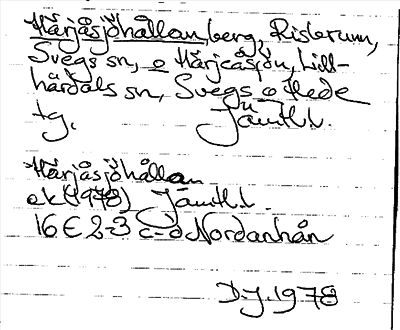 Härjåsjöhållan, berg, Risbrunn,
Svegs sn, o Härjeåsjön, Lill-
härdals sn, Svegs o Hede
tg. Jämtl.l.
Härjåsjöhållan
ek (1978) Jämtl.l.
16 E 2-3 c-d Nordanhån
D.J. 1978